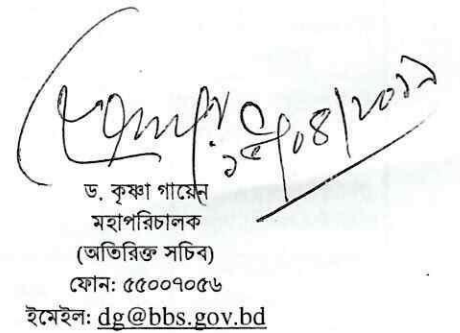 ১৫/০৪/২০১৯
ড. কৃষ্ণা গায়েন
মহাপরিচালক
(অতিরিক্ত সচিব)
ফোন: ৫৫০০৭০৫৬
ইমেইল: dg@bbs.gov.bd